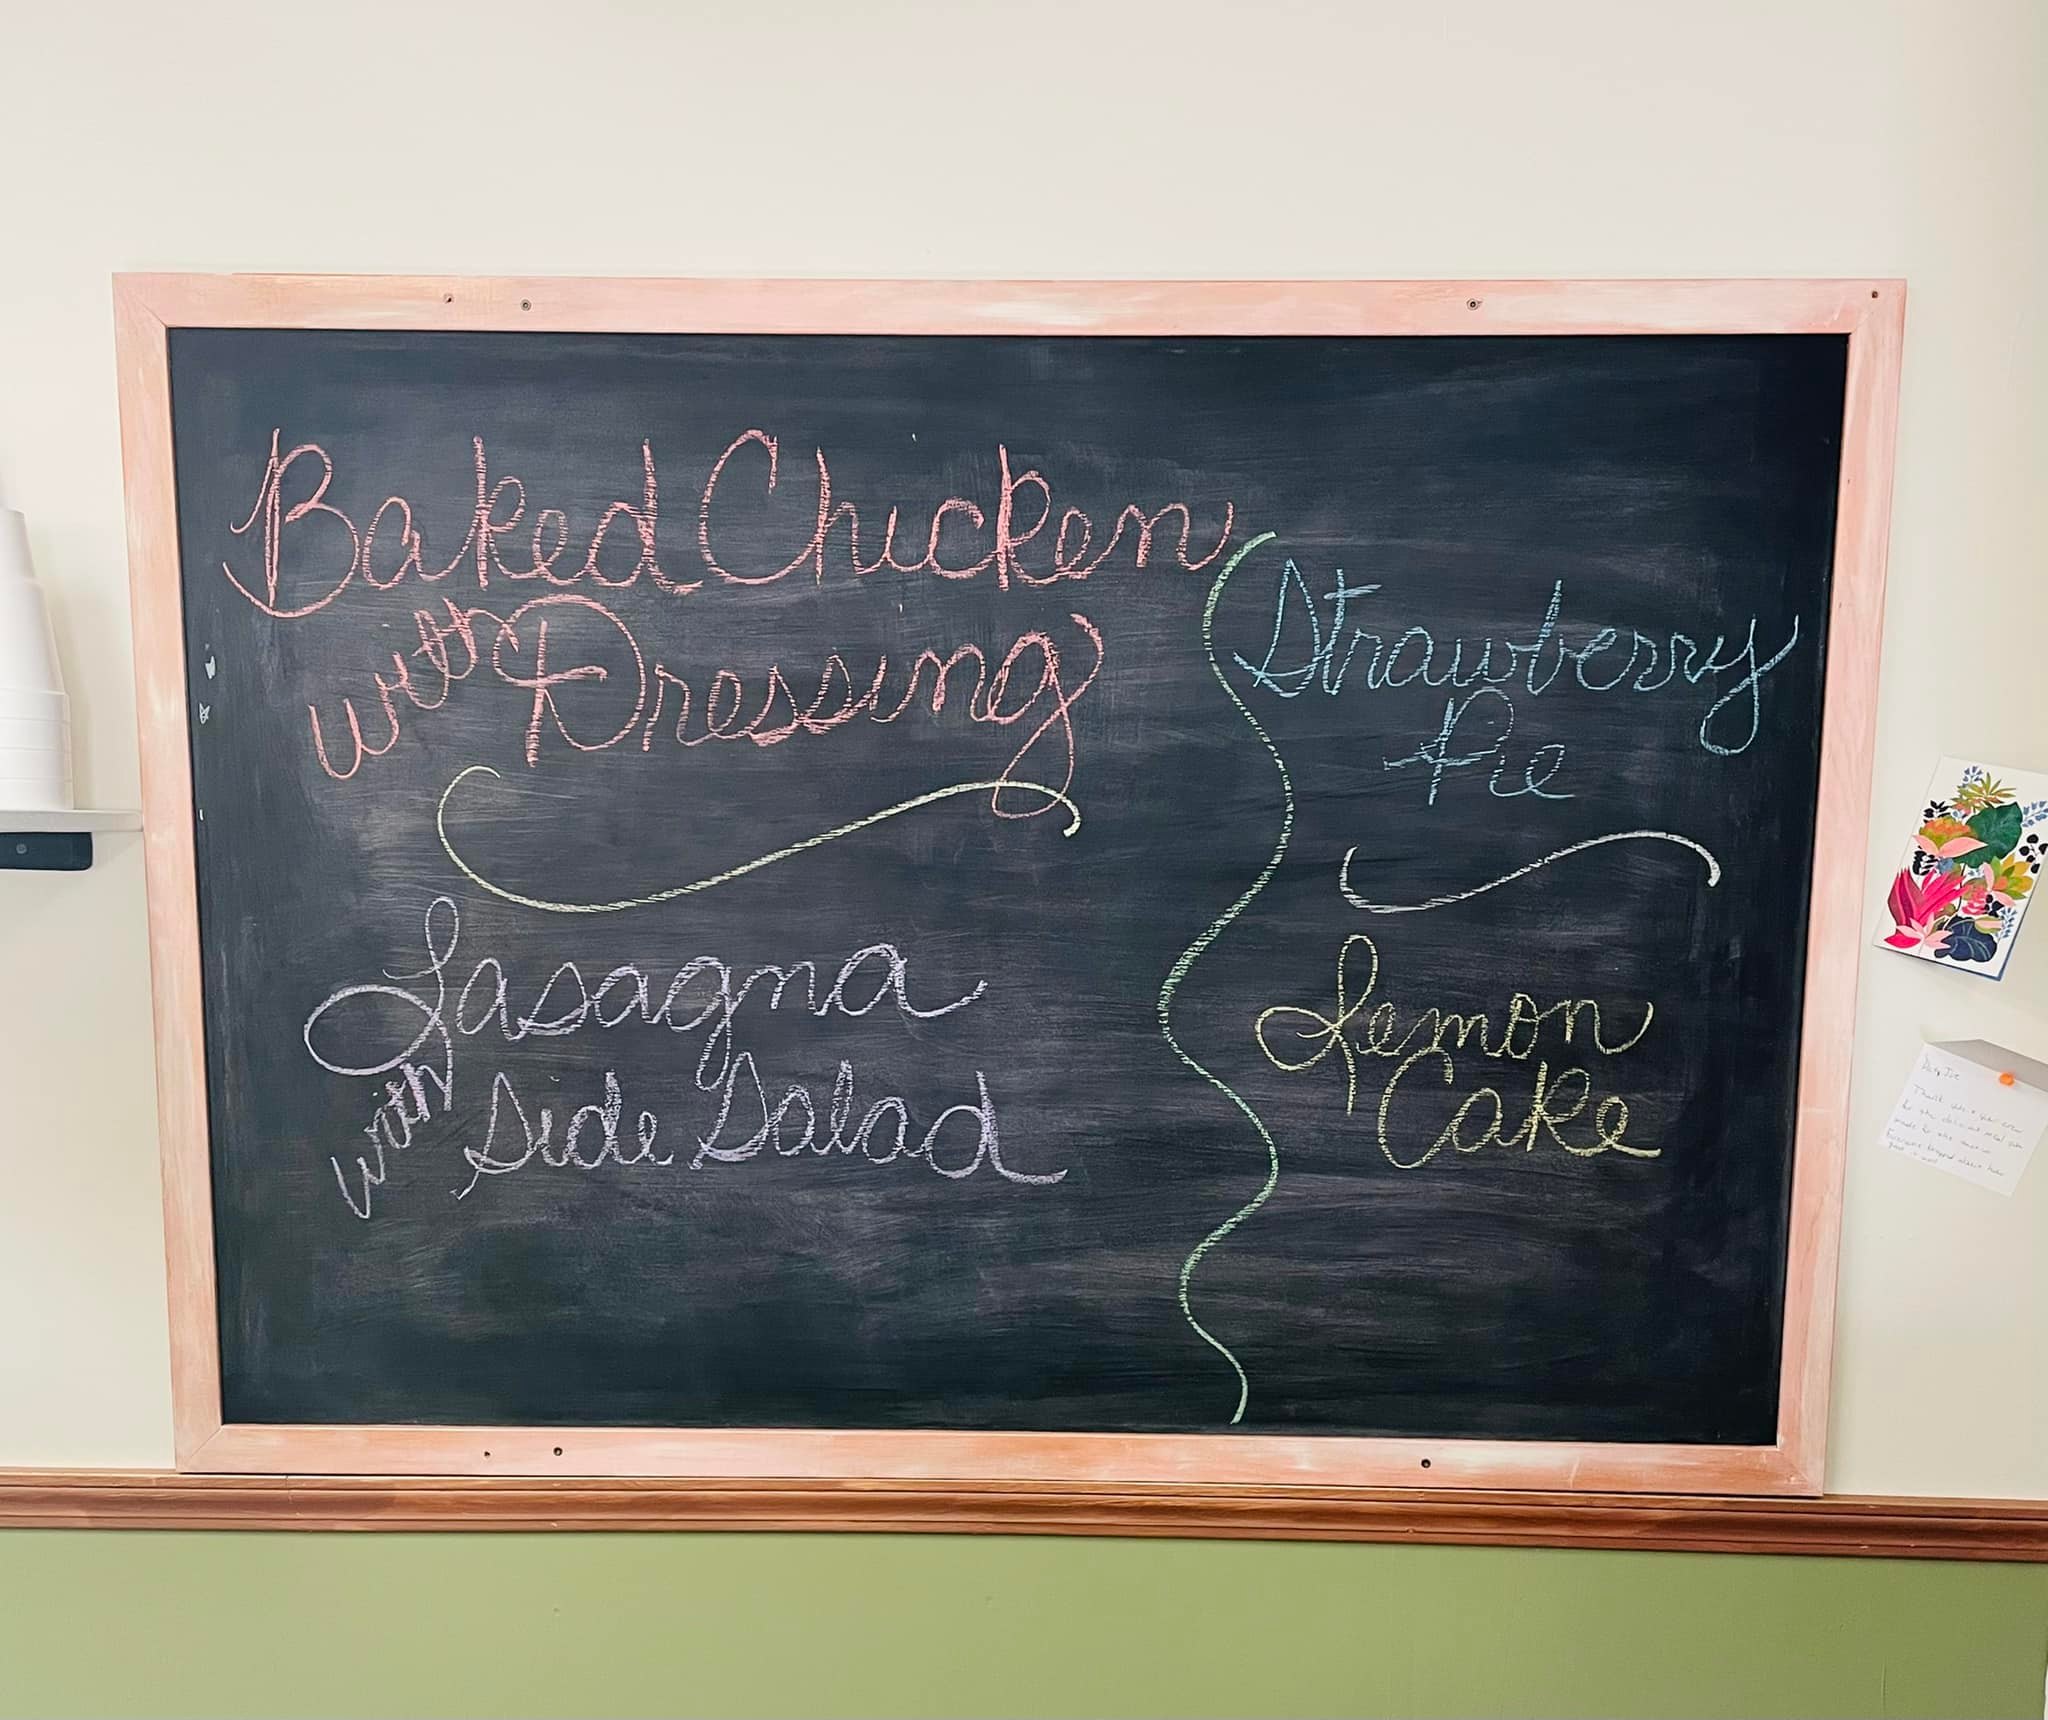 Baked Chicken
with Dressing
Lasagna
with Side Salad
Strawberry
Pie
Lemon
Cake
Thank you